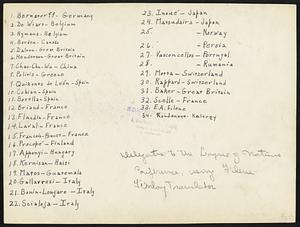 1. Bernstorff - Germany
2. De Wiart - Belgium
3. Hymans - Belgium
4. Borden - Canada
5. Dalton - Great Britain
6. Henderson - Great Britain
7. Chao-Chu-Wu - China
8. Politis - Greece
9. Quinones de León - Spain
10. Cobian - Spain
11. Botella - Spain
12. Briand - France
13. Flandin - France
14. Laval - France
15. François-Poncet - France
16. Procopé - Finland
17. Apponyi - Hungary
18. - Haiti
19. Matos - Guatemala
20. Gallavresi - Italy
21. Bonin-Longare - Italy
22. Scialoja - Italy
23. - Japan
24. Matsudaira - Japan
25. - Norway
26. - Persia
27. Vasconcellos - Portugal
28. - Rumania
29. Motta - Switzerland
30. Rappard - Switzerland
31. Baker - Great Britain
32. - France
33. E.A. Filene
34.
Delegates to the League of Nations
Conference, using Filene
Finlay Translator